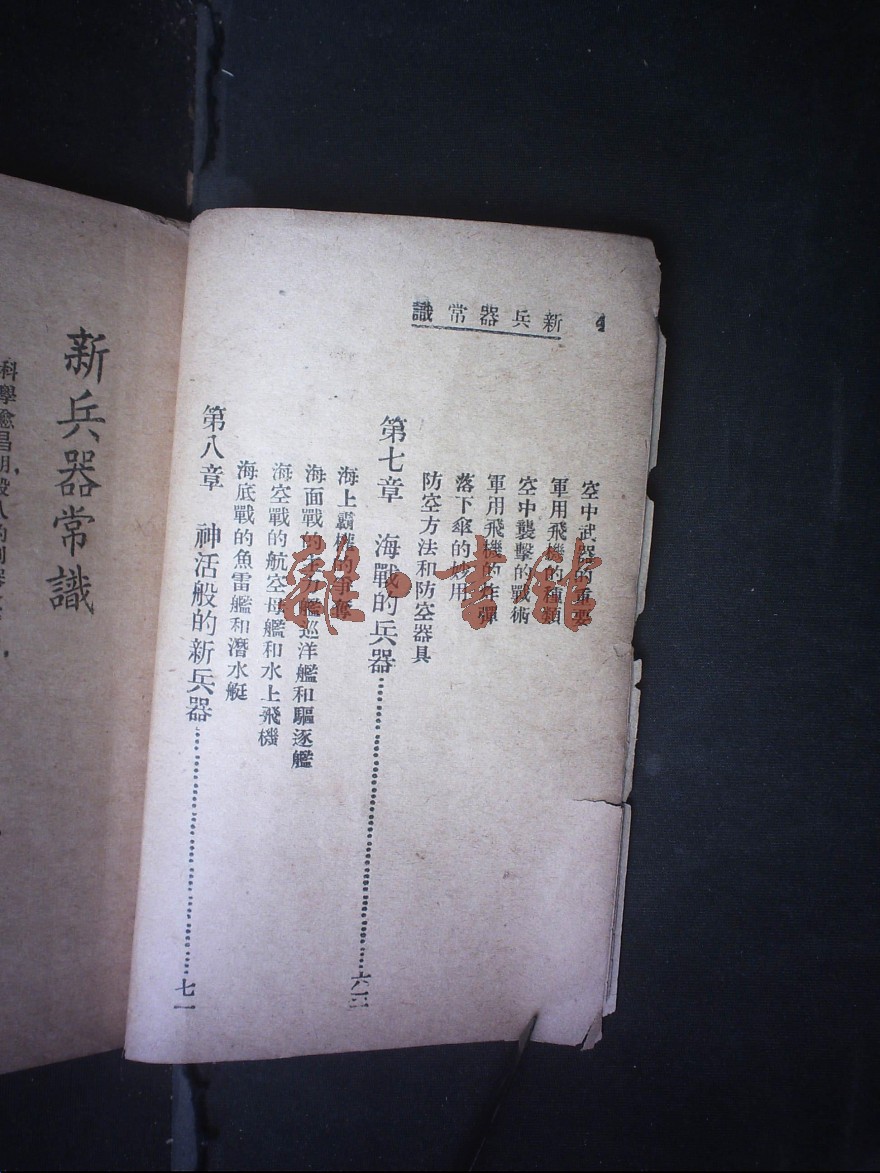 4 新兵器常識
空中武器的重要
軍用飛機的種類
空中襲擊的戰術
軍用飛機的炸彈
落下傘的妙用
防空方法和防空器具
第七章 海戰的兵器……
海上霸權的爭奪
海面戰的主力艦巡洋艦和驅逐艦
海空戰的航空母艦和水上飛機
海底戰的魚雷艦和潛水艇
第八章 神活般的新兵器……七一
新兵器常識
科學愈昌明,殺人的利器
雜·書館